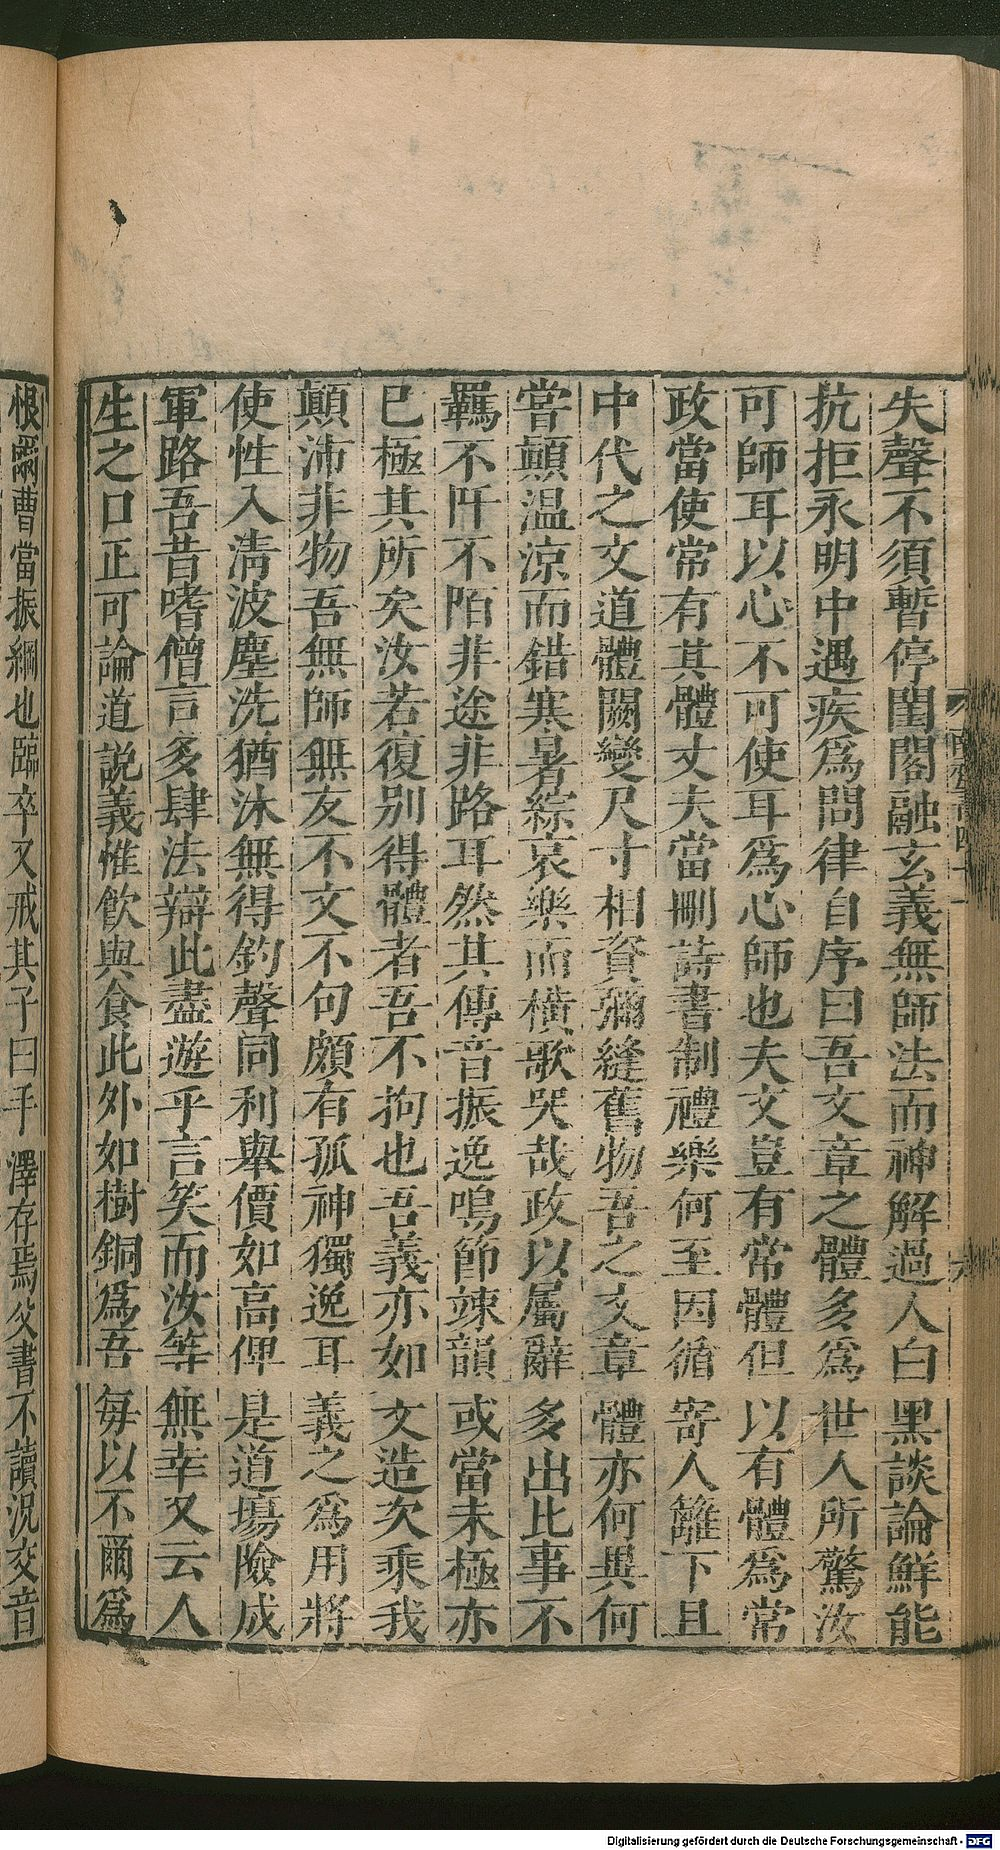 失聲不須暫停閨閤融玄義無師法而神解過人白黑談論鮮能
抗拒永明中遇疾爲問律自序曰吾文章之體多爲世人所驚汝
可師耳以心不可使耳爲心師也夫文豈有常體但以有體爲常
政當使常有其體丈夫當刪詩書制禮樂何至因循寄人籬下且
中代之文道體闕變尺寸相資彌縫舊物吾之文章體亦何異何
嘗顛温凉而錯寒暑綜哀樂而橫歌哭哉政以屬辭多出比事不
羈不阡不陌非途非路耳然其傳音振逸鳴節竦韻或當未極亦
已極其所矣汝若復别得體者吾不拘也吾義亦如文造次乘我
顛沛非物吾無師無友不文不句頗有孤神獨逸耳義之爲用將
使性入清波塵洗猶沐無得釣聲同利舉價如高俾是道場險成
軍路吾昔嗜僧言多肆法辯此盡遊乎言笑而汝等無幸又云人
生之口正可論道說義惟飲與食此外如樹銅爲吾每以不爾爲
恨爾曹當振綱也臨卒又戒其子曰手澤存焉父書不讀況父音
Digitalisierung gefördert durch die Deutsche Forschungsgemeinschaft - DFG